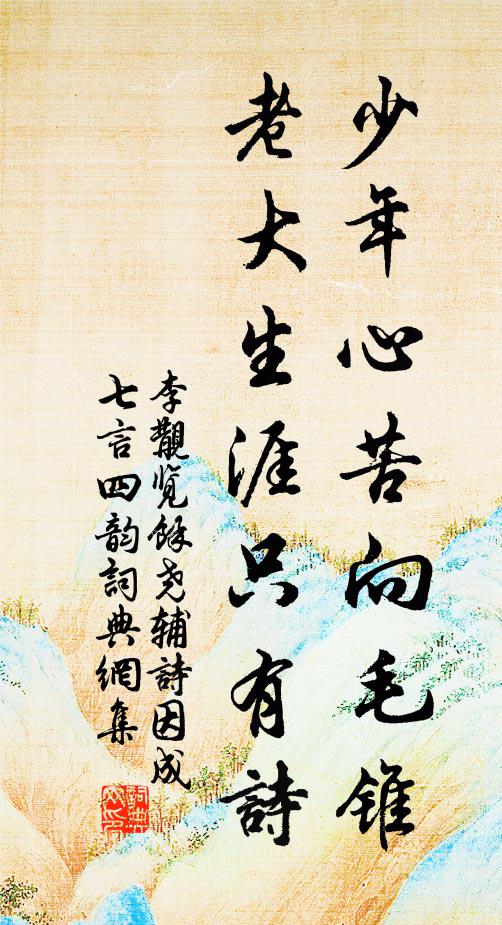 少年心苦向毛锥
老大生涯只有詩
李覯览馀尧辅詩因成
七言四韵詞典網集